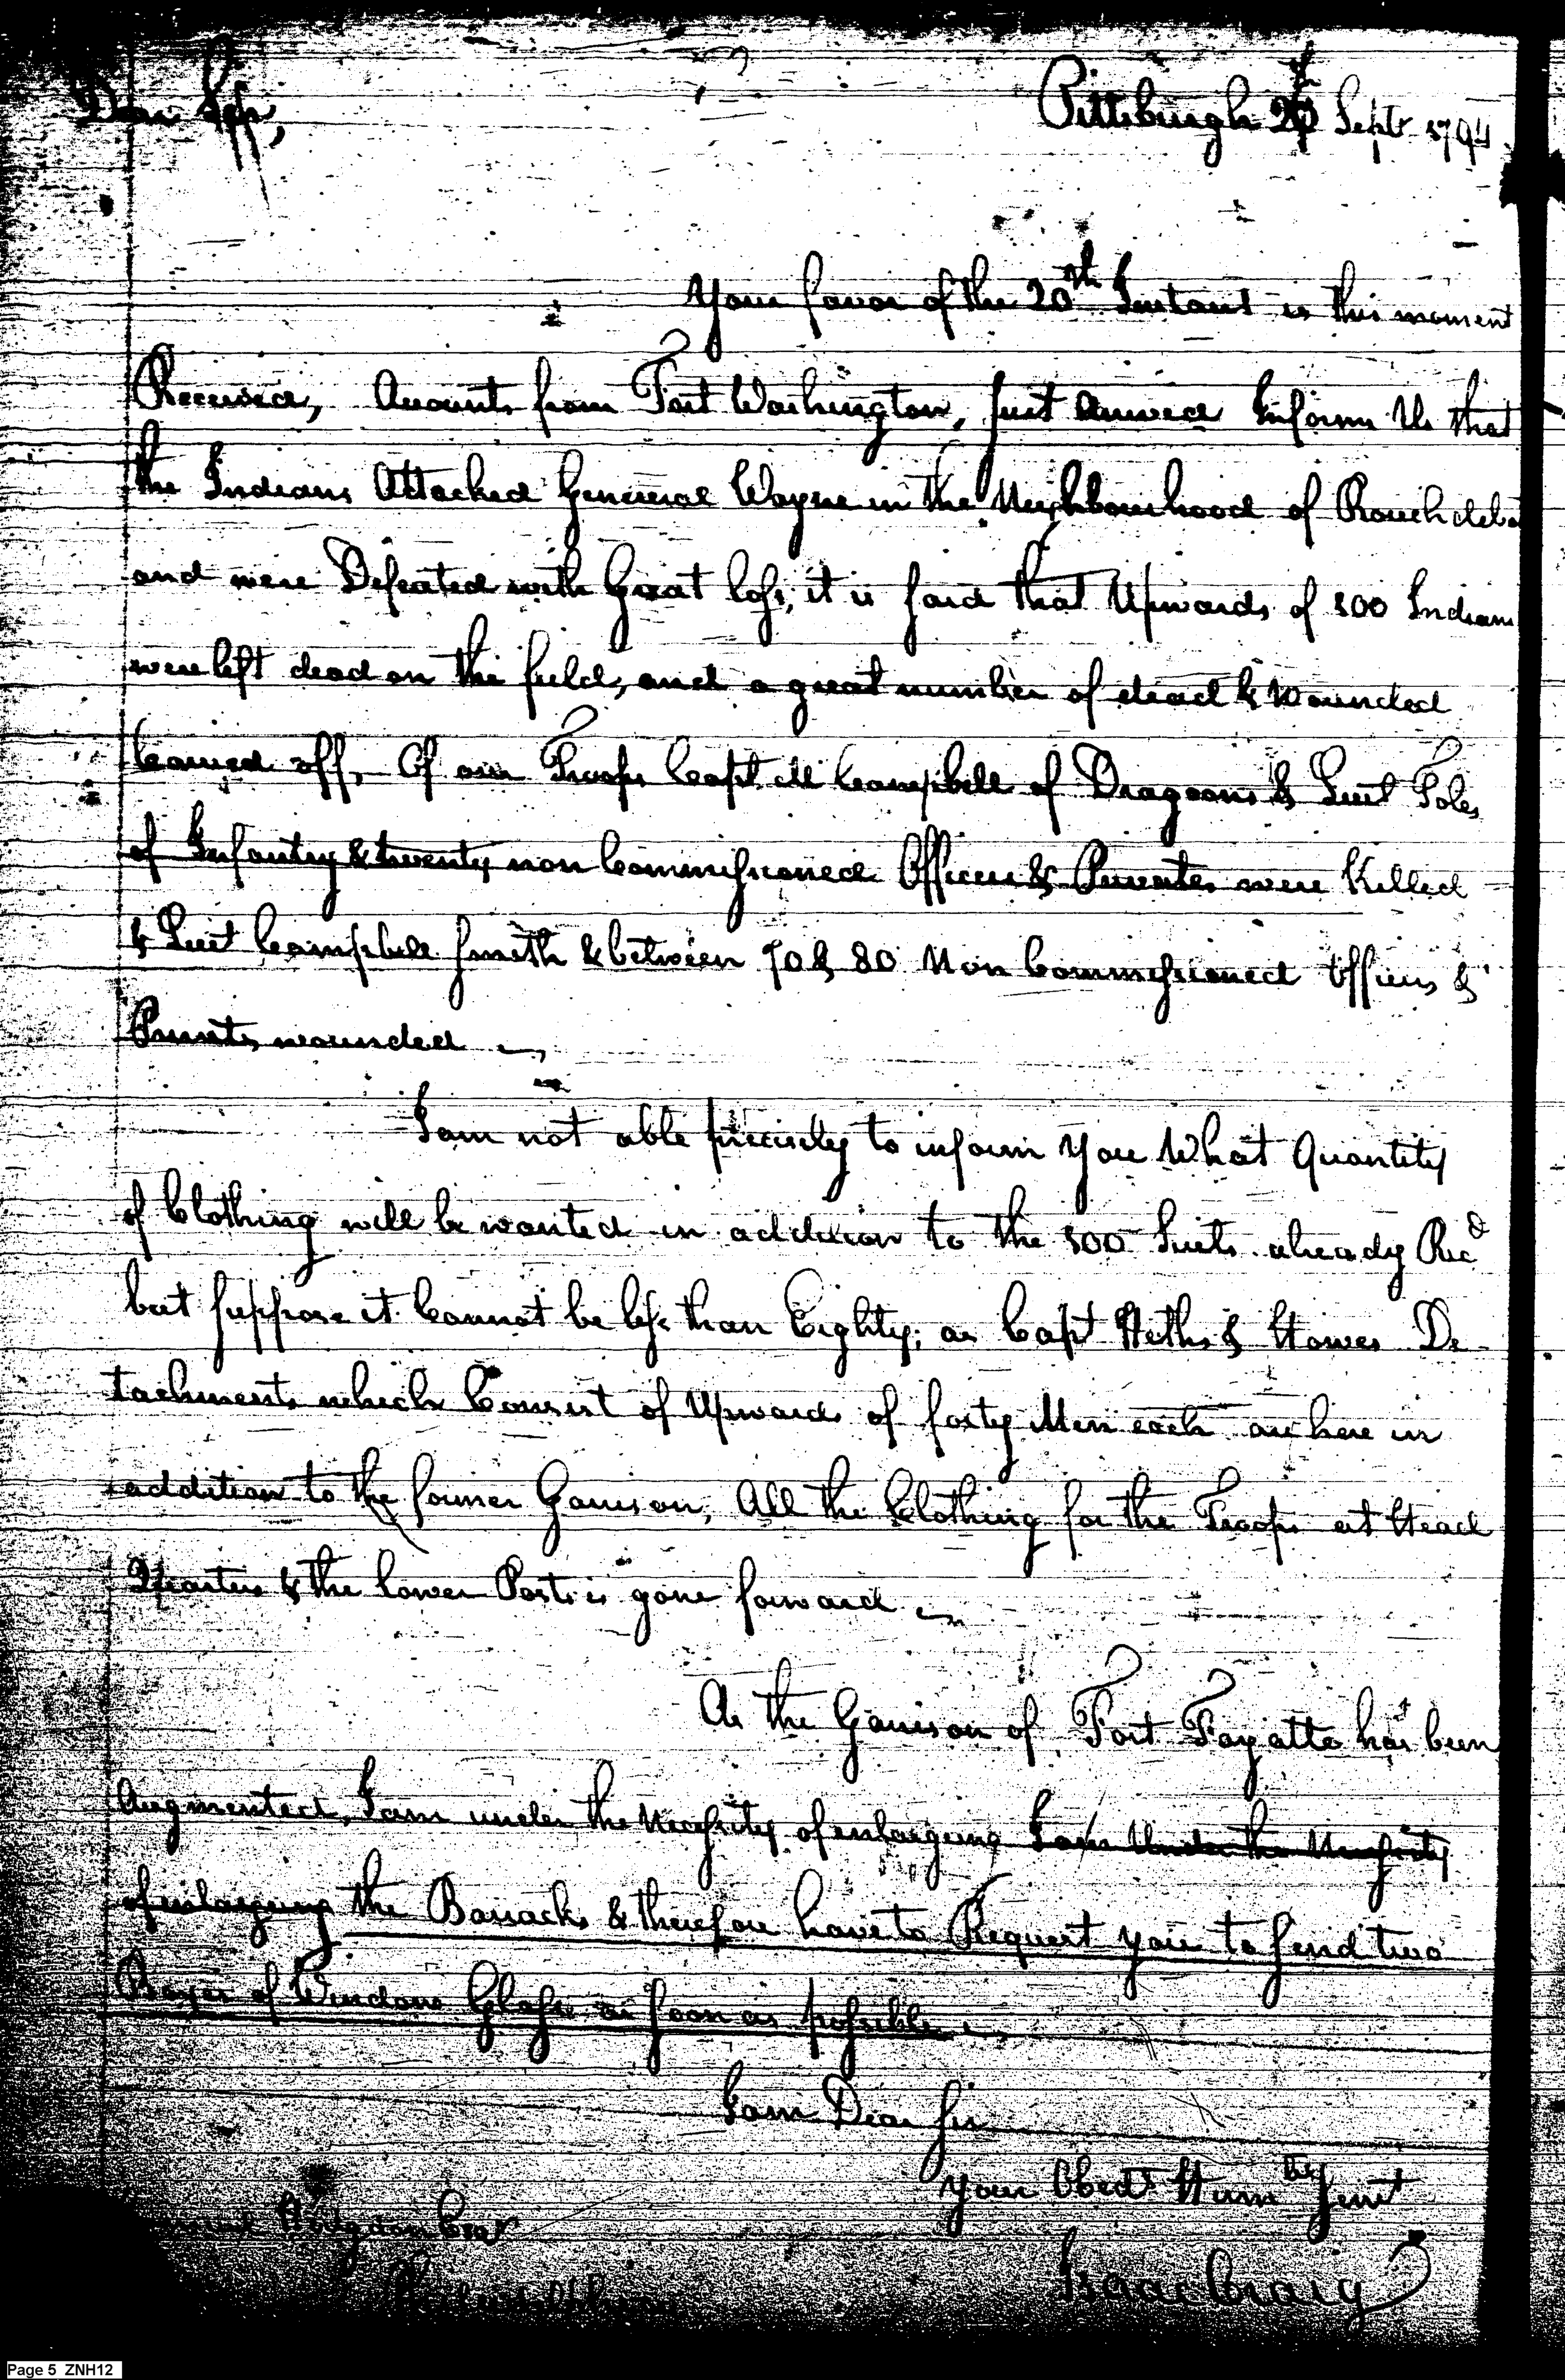 Dear Sir, Pittsburgh Sept 1794
Your favor of the 20th Instant is this moment
Received, Accounts from Fort Washington, just arrived Inform Us that
the Indians Attacked General Wayne in the Neighbourhood of
and were Defeated with Great loss, it is said that Upwards of 100 Indians
were left dead on the field, and a great number of dead & Wounded
Carried off. Of our Troops Capt. M Campbell of Dragoons & Lieut
of Infantry & twenty non Commissioned Officers & Privates were Killed
& Lieut Campbell Smith & between 70 & 80 Non Commissioned Officers &
Privates wounded
I am not able precisely to inform You What Quantity
of Clothing will be wanted in addition to the 100 Suits already Recd
but suppose it Cannot be less than Eighty, as Capt Heths & Howes De
tachments which Consist of Upwards of forty Men each are here in
addition to the former Garrison, All the Clothing for the Troops at Head
Quarters & the lower Posts is gone forward
As the Garrison of Fort Fayatte has been
Augmented, I am under the Necessity of enlargeing I am Under the Necessity
of enlargeing the Barracks & therefore have to Request you to send two
Boxes of Window Glass as soon as possible
I am Dear Sir
Your Obedt Humbe Servt
Hodgdon Esqr
Isaac Craig
Page 5 ZNH12